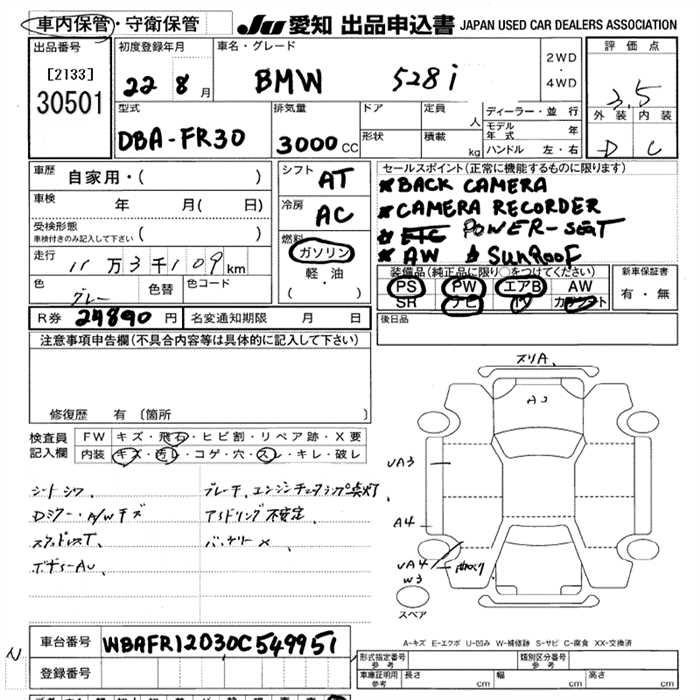 車内保管・守衛保管 JU 愛知 出品申込書 JAPAN USED CAR DEALERS ASSOCIATION
出品番号 初度登録年月 車名・グレード 2WD ・ 4WD 評価点
[2133] 22 8月 BMW 528i 3.5
30501
型式 排気量 ドア 定員 人 ディーラー・並行 外装 内装
DBA-FR30 3000CC 形状 積載 kg モデル年式 年 D C
ハンドル 左・右
車歴 自家用・( ) シフト AT セールスポイント(正常に機能するものに限ります)
車検 年 月( 日) 冷房 AC *BACK CAMERA
*CAMERA RECORDER
受検形態 車検付きのみ記入して下さい ( ) 燃料 ガソリン POWER-SEAT
走行 11万3千109km 軽・油 *AW SUNROOF
( ・ ) 装備品(純正品に限り○をつけてください) 新車保証書
色 グレー 色替 色コード PS PW エアB AW 有・無
SR ナビ TV
R券 24890円 名変通知期限 月 日 後日品
注意事項申告欄(不具合内容等は具体的に記入して下さい)
修復歴 有 〔箇所
検査員記入欄 FW キズ・飛石・ヒビ割・リペア跡・X要
内装 キズ・汚レ・コゲ・穴・スレ・キレ・破レ
シートシワ、 ブレーキ、エンジンチェックランプ点灯
Dミラー・A/Wキズ アイドリング不安定、
スタッドレスT、 バッテリー×
ボデーAU、
スリA
A3
UA3
A4
UA4
W3
スペア
A-キズ E-エクボ U-凹み W-補修跡 S-サビ C-腐食 XX-交換済
車台番号 WBAFR12030C549951
登録番号
形式指定番号 参考 類別区分番号 参考
車庫証明用 参考 長さ cm 幅 cm 高さ cm